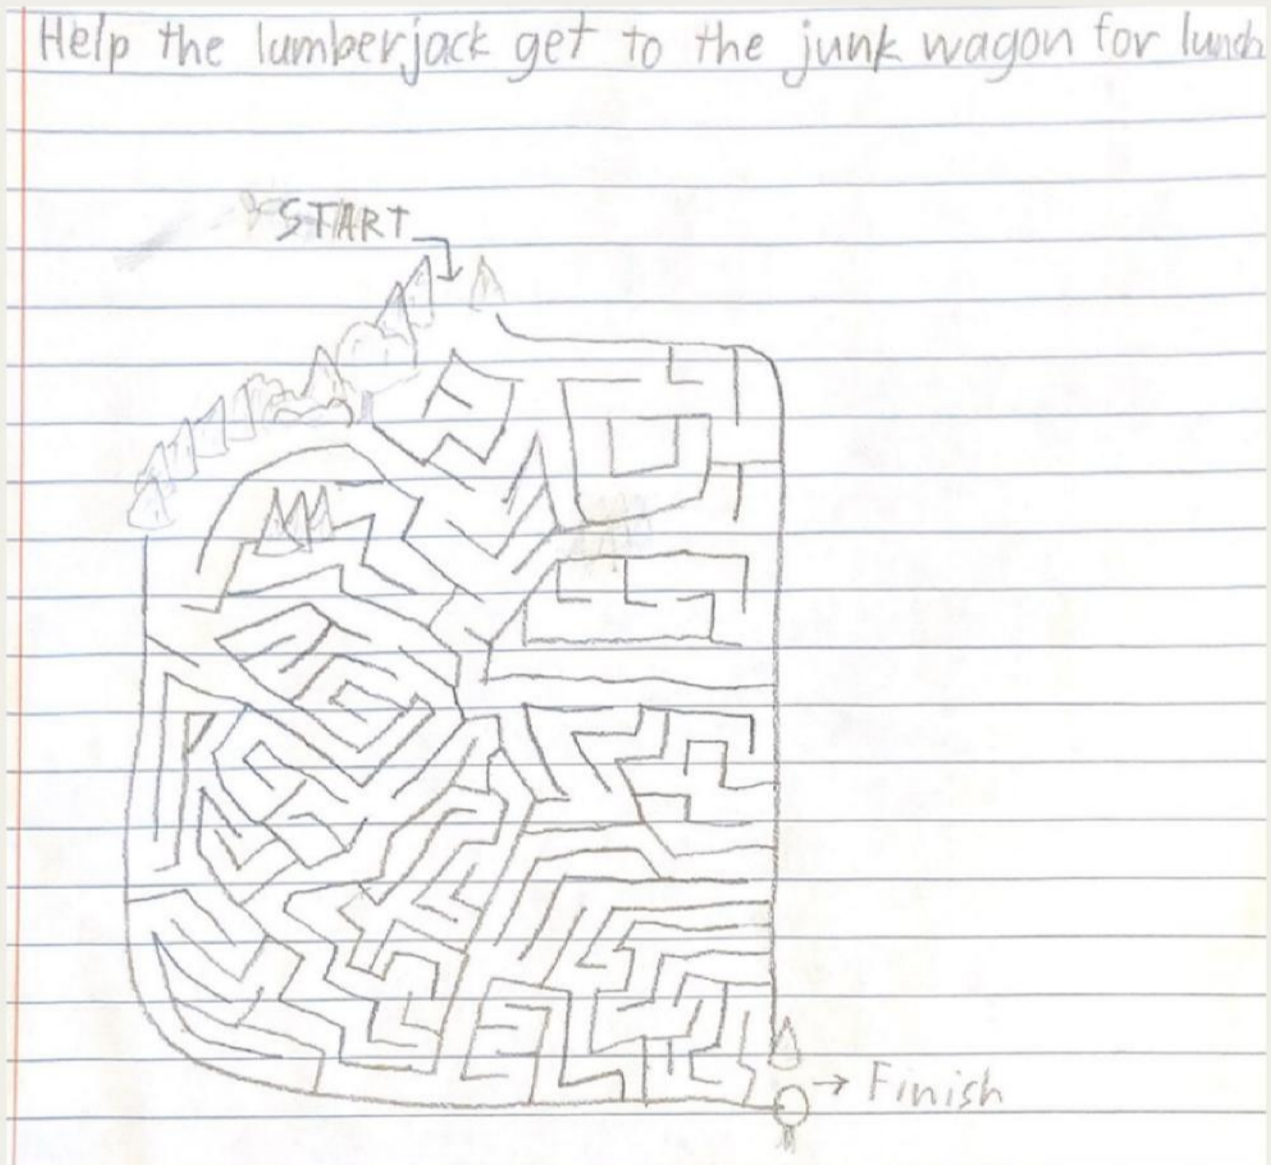 Help the lumberjack get to the junk wagon for lunch
START
Finish